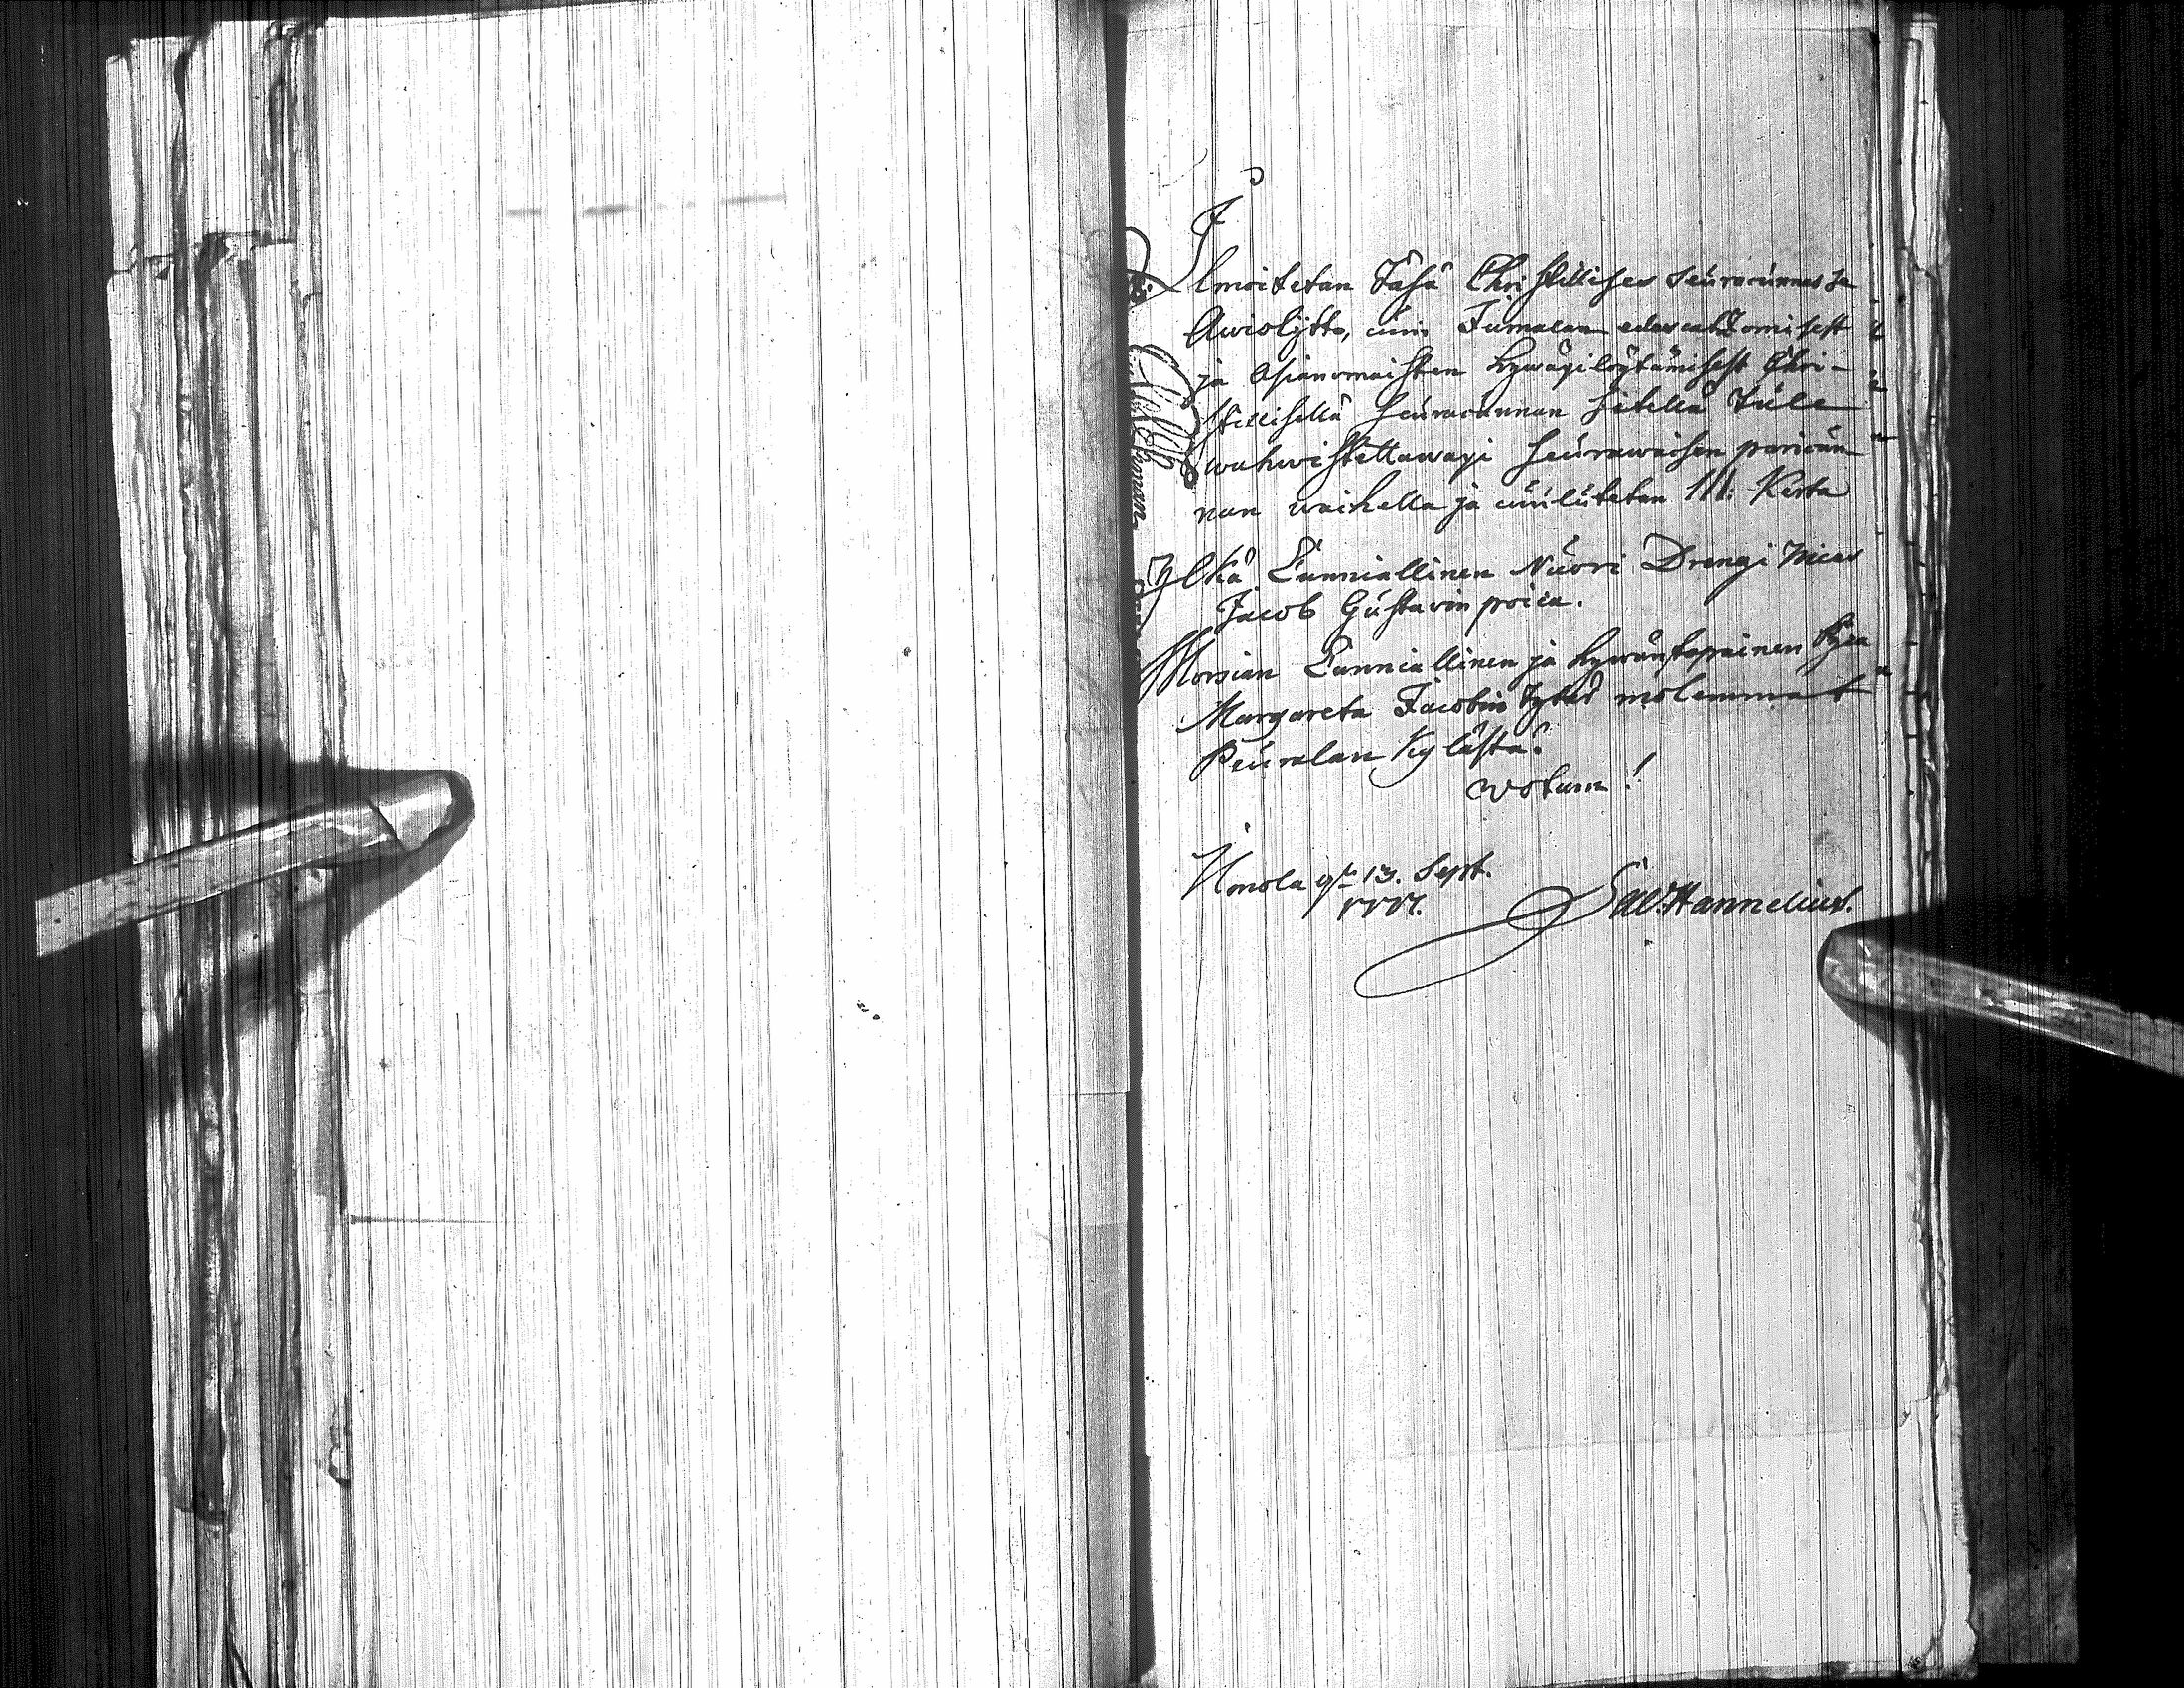 Ilmoitetan täsä Christillises seuracunnasa
Awiolijtto, cuin Jumalan edescatzomisest
ja asianomaisten hywäxilöytämisest Chri-
stillisellä seuracunnan sitellä tule
wahwistettawaxi seurawaisen paricun-
nan waihella ja cuulutetan III. Kerta
Ylkä Cunniallinen Nuori Drengi Mies
Jacob Gustavin poica.
Morsian Cunniallinen ja hywäntapainen Pijca
Margareta Jacobin tytär molemmat
Peuralan Kylästä.
Votum!
13. Sept.
Hannelius.